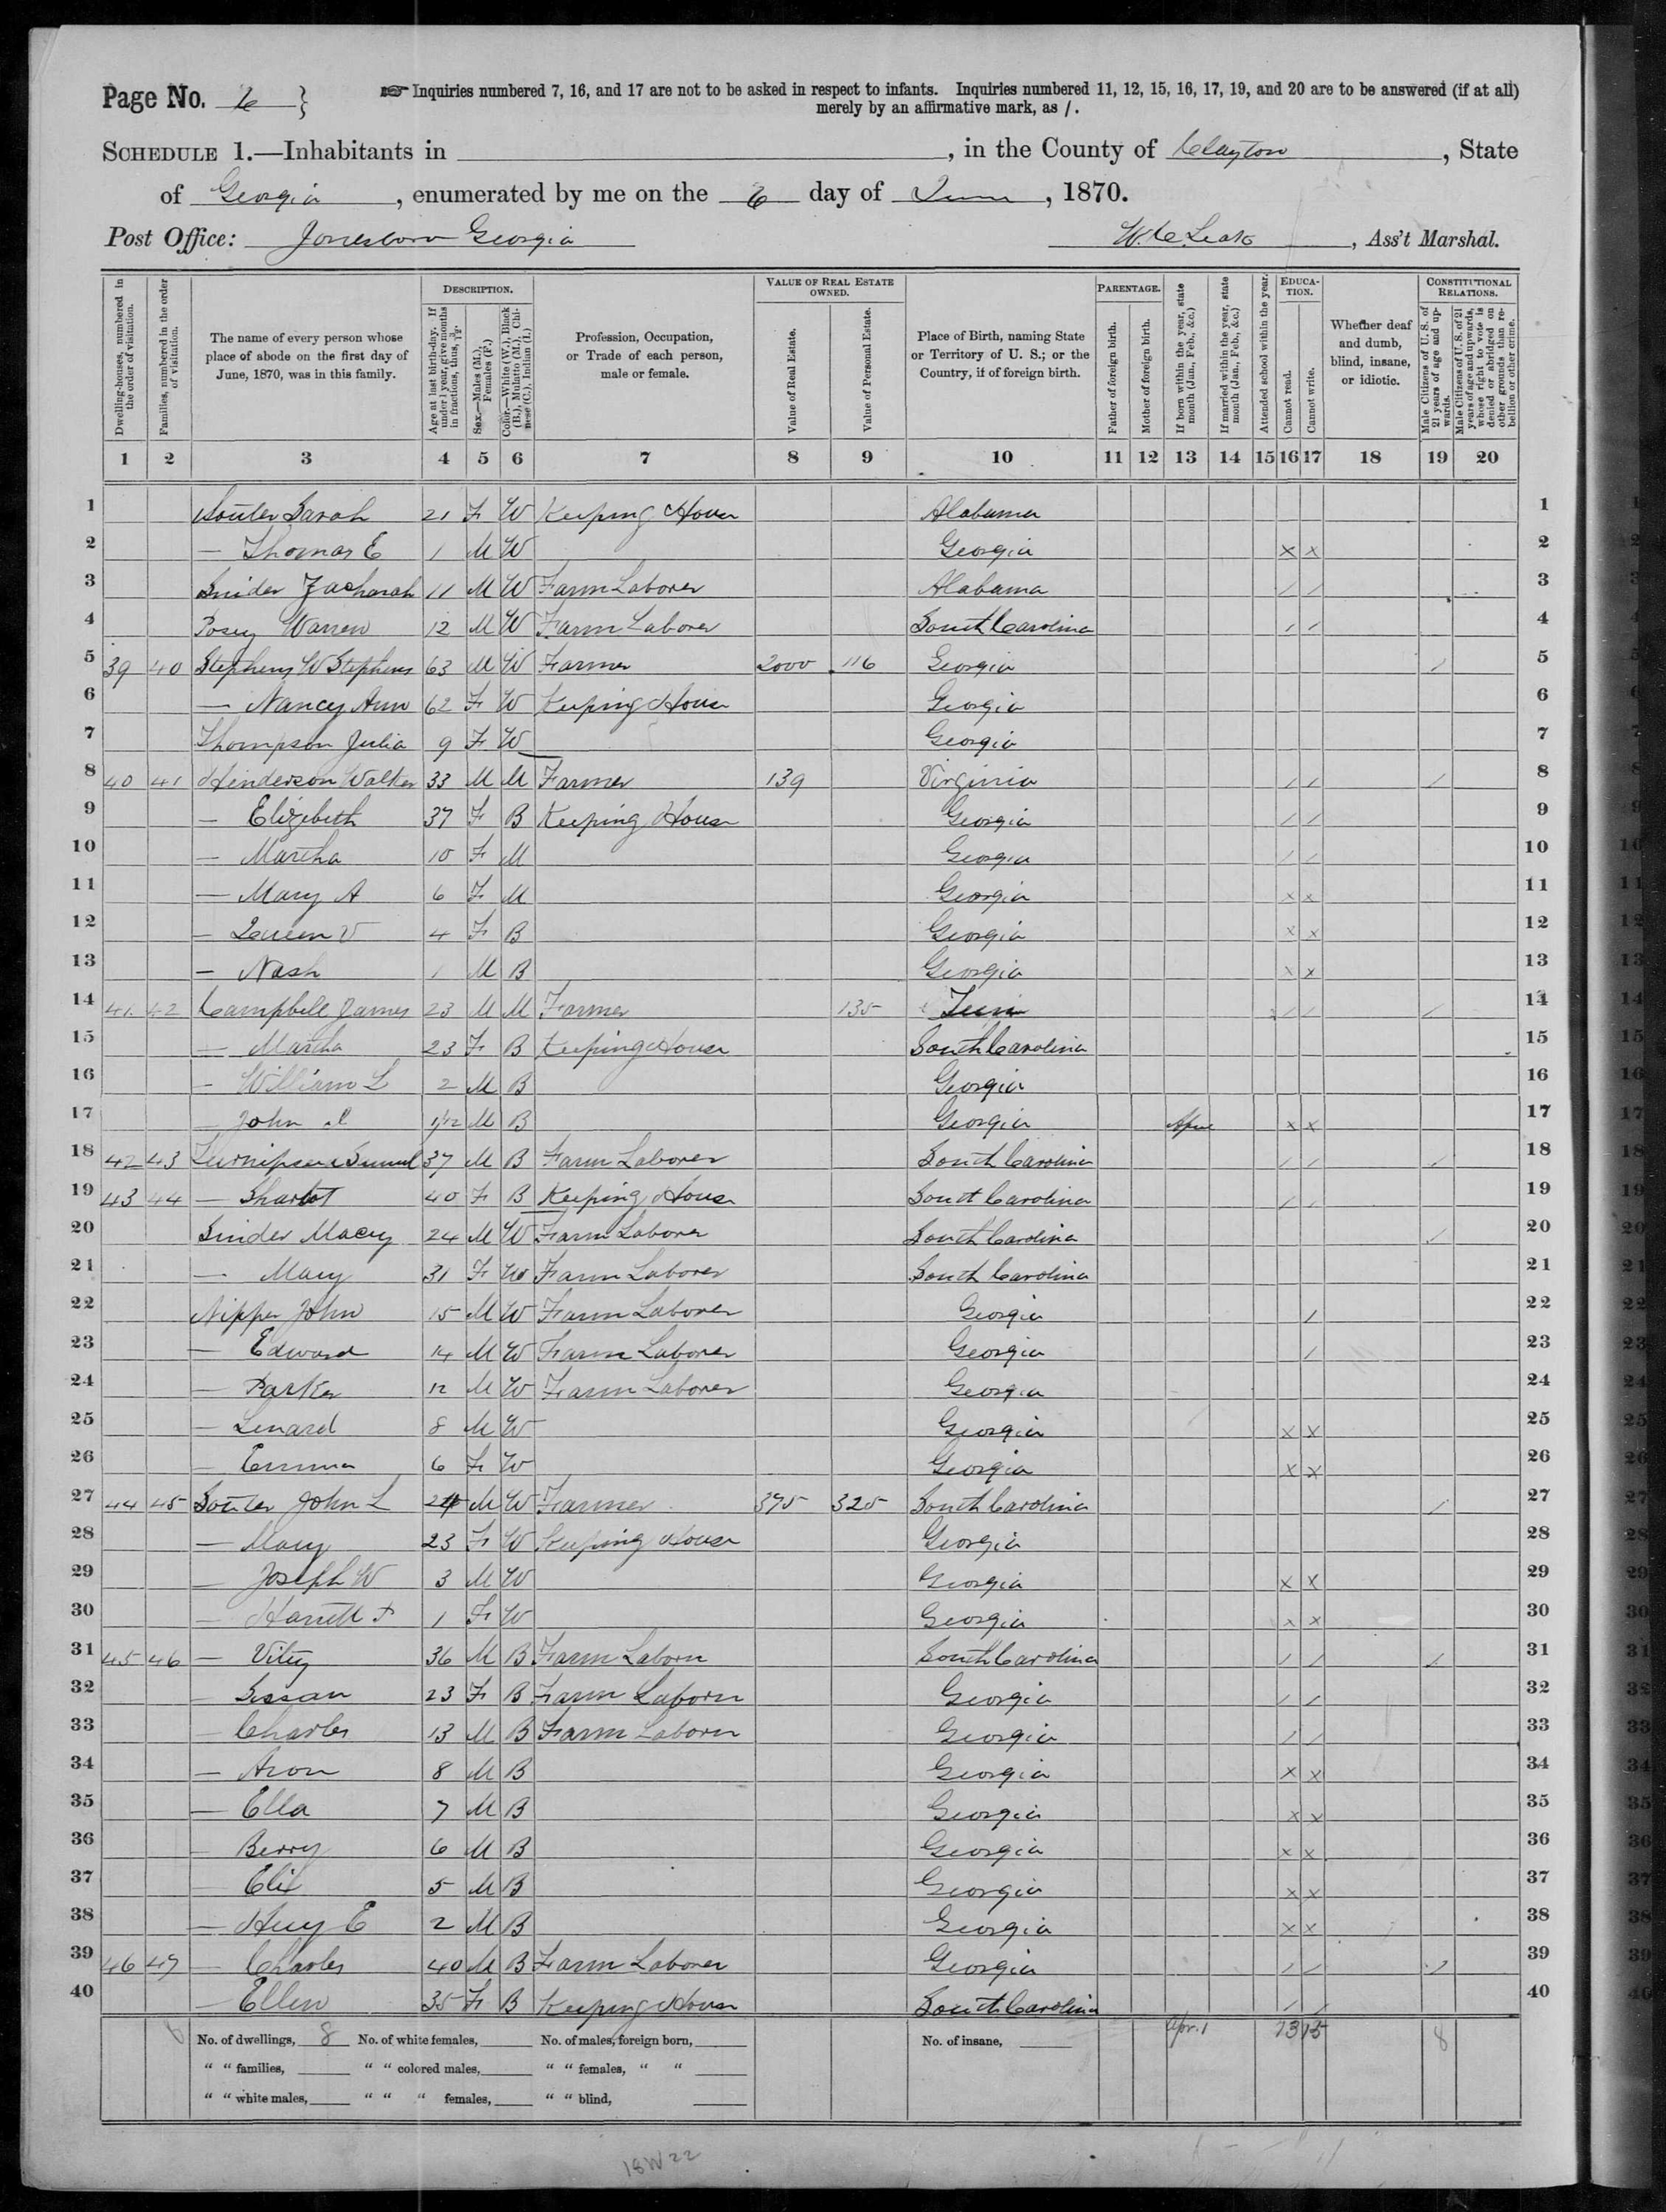 Page No. 6 }
☞ Inquiries numbered 7, 16, and 17 are not to be asked in respect to infants. Inquiries numbered 11, 12, 15, 16, 17, 19, and 20 are to be answered (if at all)
merely by an affirmative mark, as /.
SCHEDULE 1.—Inhabitants in , in the County of Clayton, State
of Georgia, enumerated by me on the 6 day of June, 1870.
Post Office: Jonesboro Georgia
, Ass't Marshal.
Dwelling-houses, numbered in the order of visitation.
Families, numbered in the order of visitation.
The name of every person whose place of abode on the first day of June, 1870, was in this family.
DESCRIPTION.
Age at last birth-day. If under 1 year, give months in fractions, thus, 3/12.
Sex.—Males (M.), Females (F.)
Color.—White (W.), Black (B.), Mulatto (M.), Chinese (C.), Indian (I.)
Profession, Occupation, or Trade of each person, male or female.
VALUE OF REAL ESTATE OWNED.
Value of Real Estate.
Value of Personal Estate.
Place of Birth, naming State or Territory of U. S.; or the Country, if of foreign birth.
PARENTAGE.
Father of foreign birth.
Mother of foreign birth.
If born within the year, state month (Jan., Feb., &c.)
If married within the year, state month (Jan., Feb., &c.)
Attended school within the year.
EDUCATION.
Cannot read.
Cannot write.
Whether deaf and dumb, blind, insane, or idiotic.
CONSTITUTIONAL RELATIONS.
Male Citizens of U. S. of 21 years of age and upwards.
Male Citizens of U. S. of 21 years of age and upwards, whose right to vote is denied or abridged on other grounds than rebellion or other crime.
1 2 3 4 5 6 7 8 9 10 11 12 13 14 15 16 17 18 19 20
1 Souter Sarah 21 F W Keeping House Alabama 1
2 — Thomas E 1 M W Georgia x x 2
3 Snider Zachariah 11 M W Farm Laborer Alabama / / 3
4 Posey Warren 12 M W Farm Laborer South Carolina / / 4
5 39 40 Stephens W Stephens 63 M W Farmer 2000 116 Georgia / 5
6 — Nancy Ann 62 F W Keeping House Georgia 6
7 Thompson Julia 9 F W Georgia 7
8 40 41 Henderson Walker 33 M M Farmer 139 Virginia / / / 8
9 — Elizebeth 37 F B Keeping House Georgia / / 9
10 — Martha 10 F M Georgia / / 10
11 — Mary A 6 F M Georgia x x 11
12 — Queen V 4 F B Georgia x x 12
13 — Nash 1 M B Georgia x x 13
14 41 42 Campbell James 23 M M Farmer 135 / / / 14
15 — Martha 23 F B Keeping House South Carolina 15
16 — William L 2 M B Georgia 16
17 — John 1/12 M B Georgia x x 17
18 42 43 37 M B Farm Laborer South Carolina / / / 18
19 43 44 — Sharlot 40 F B Keeping House South Carolina / / 19
20 Snider Macey 24 M W Farm Laborer South Carolina / 20
21 — Mary 31 F W Farm Laborer South Carolina 21
22 Nipper John 15 M W Farm Laborer Georgia / 22
23 — Edward 14 M W Farm Laborer Georgia / 23
24 — Parker 12 M W Farm Laborer Georgia 24
25 — Lenard 8 M W Georgia x x 25
26 — Emma 6 F W Georgia x x 26
27 44 45 Souter John L 24 M W Farmer 375 325 South Carolina / 27
28 — Mary 23 F W Keeping House Georgia 28
29 — Joseph W 3 M W Georgia x x 29
30 — Harrett F 1 F W Georgia x x 30
31 45 46 — 36 M B Farm Laborn South Carolina / / / 31
32 — Sussan 23 F B Farm Laborn Georgia / / 32
33 — Charles 13 M B Farm Laborn Georgia / / 33
34 — Aron 8 M B Georgia x x 34
35 — Ella 7 M B Georgia x x 35
36 — Berry 6 M B Georgia x x 36
37 — 5 M B Georgia x x 37
38 — 2 M B Georgia x x 38
39 46 47 — Charles 40 M B Farm Laborer Georgia / / / 39
40 — Ellen 35 F B Keeping House South Carolina / / 40
No. of dwellings, 8 No. of white females, No. of males, foreign born, No. of insane, Apr. 1 13 15 8
" " families, " " colored males, " " females, " "
" " white males, " " " females, " " blind,
18 W 22